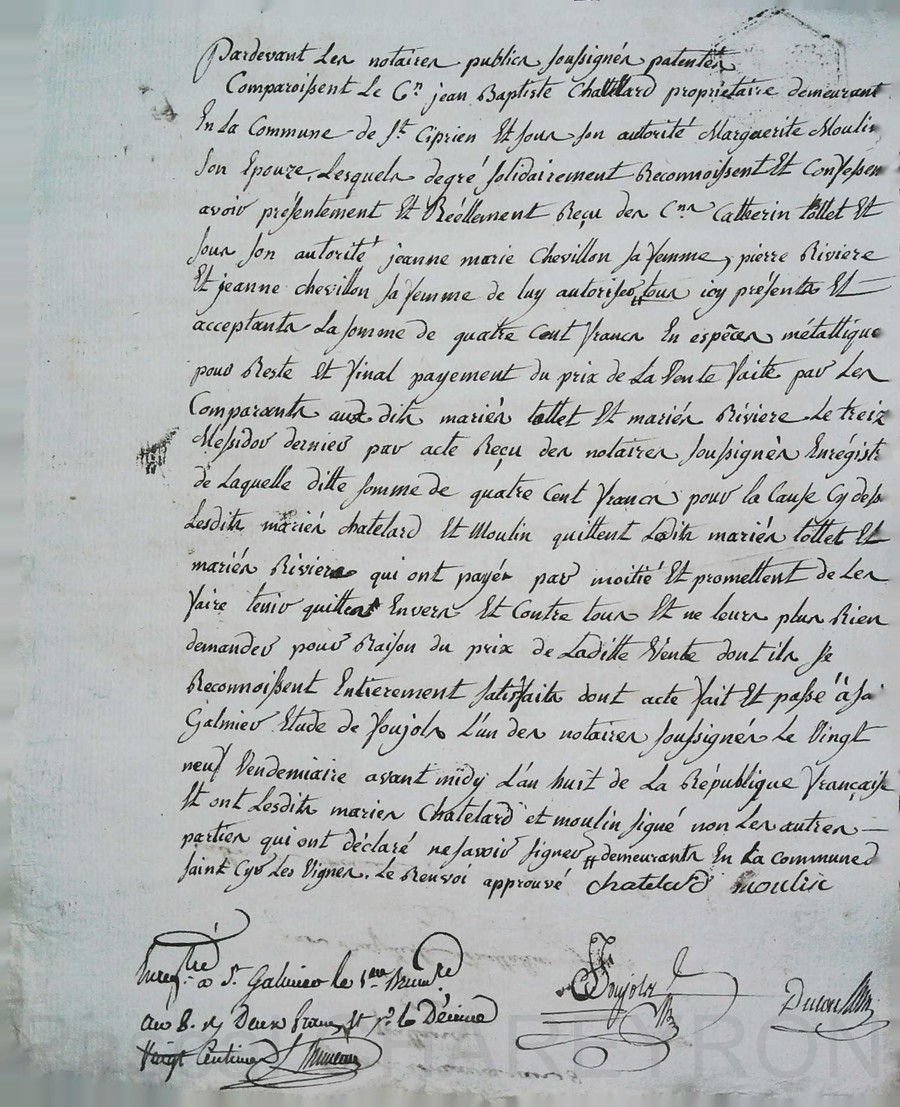 Pardevant Les notaires publics soussignés patentés
Comparoissent Le Cen jean Baptiste Chattelard proprietaire demeurant
En La Commune de St Ciprien Et sous son autorité Marguerite Moulin
son Epouze, Lesquels degré solidairement Reconnoissent Et Confessen
avoir présentement Et Réellement Reçu des Cens Catherin tollet Et
sous son autorité jeanne marie Chevillon sa femme, pierre Riviere
Et jeanne chevillon sa femme de luy autorisée, # tous icy présents Et
acceptants La somme de quatre Cent francs En espèces métallique
pour Reste Et final payement du prix de La Vente faite par Les
Comparants aux dits mariés tollet Et mariés Riviere Le treiz
Messidor dernier par acte Reçu des notaires soussignés Enrégistr
de Laquelle ditte somme de quatre Cent francs pour la Cause Cy dess
Lesdits mariés chatelard Et Moulin quittent Lesdits mariés tollet Et
mariés Riviere qui ont payés par moitié Et promettent de Les
faire tenir quittes Envers Et Contre tous Et ne leurs plus Rien
demander pour Raison du prix de Laditte Vente dont ils se
Reconnoissent Entierement satisfaits dont acte fait Et passé à Sa
Galmier Etude de Poujols L'un des notaires soussignés Le Vingt
neuf Vendemiaire avant midy L'an huit de La République française
Et ont Lesdits mariés Chatelard et moulin signé non Les autres
parties qui ont déclaré ne savoir signer # demeurants En La commune d
saint Cyr Les Vignes. Le Renvoi approuvé chatelard moulin
Enregtré a St Galmier le 1er Brumre
an 8. Deux francs Et pr Le Décime
Vingt Centimes
Poujols